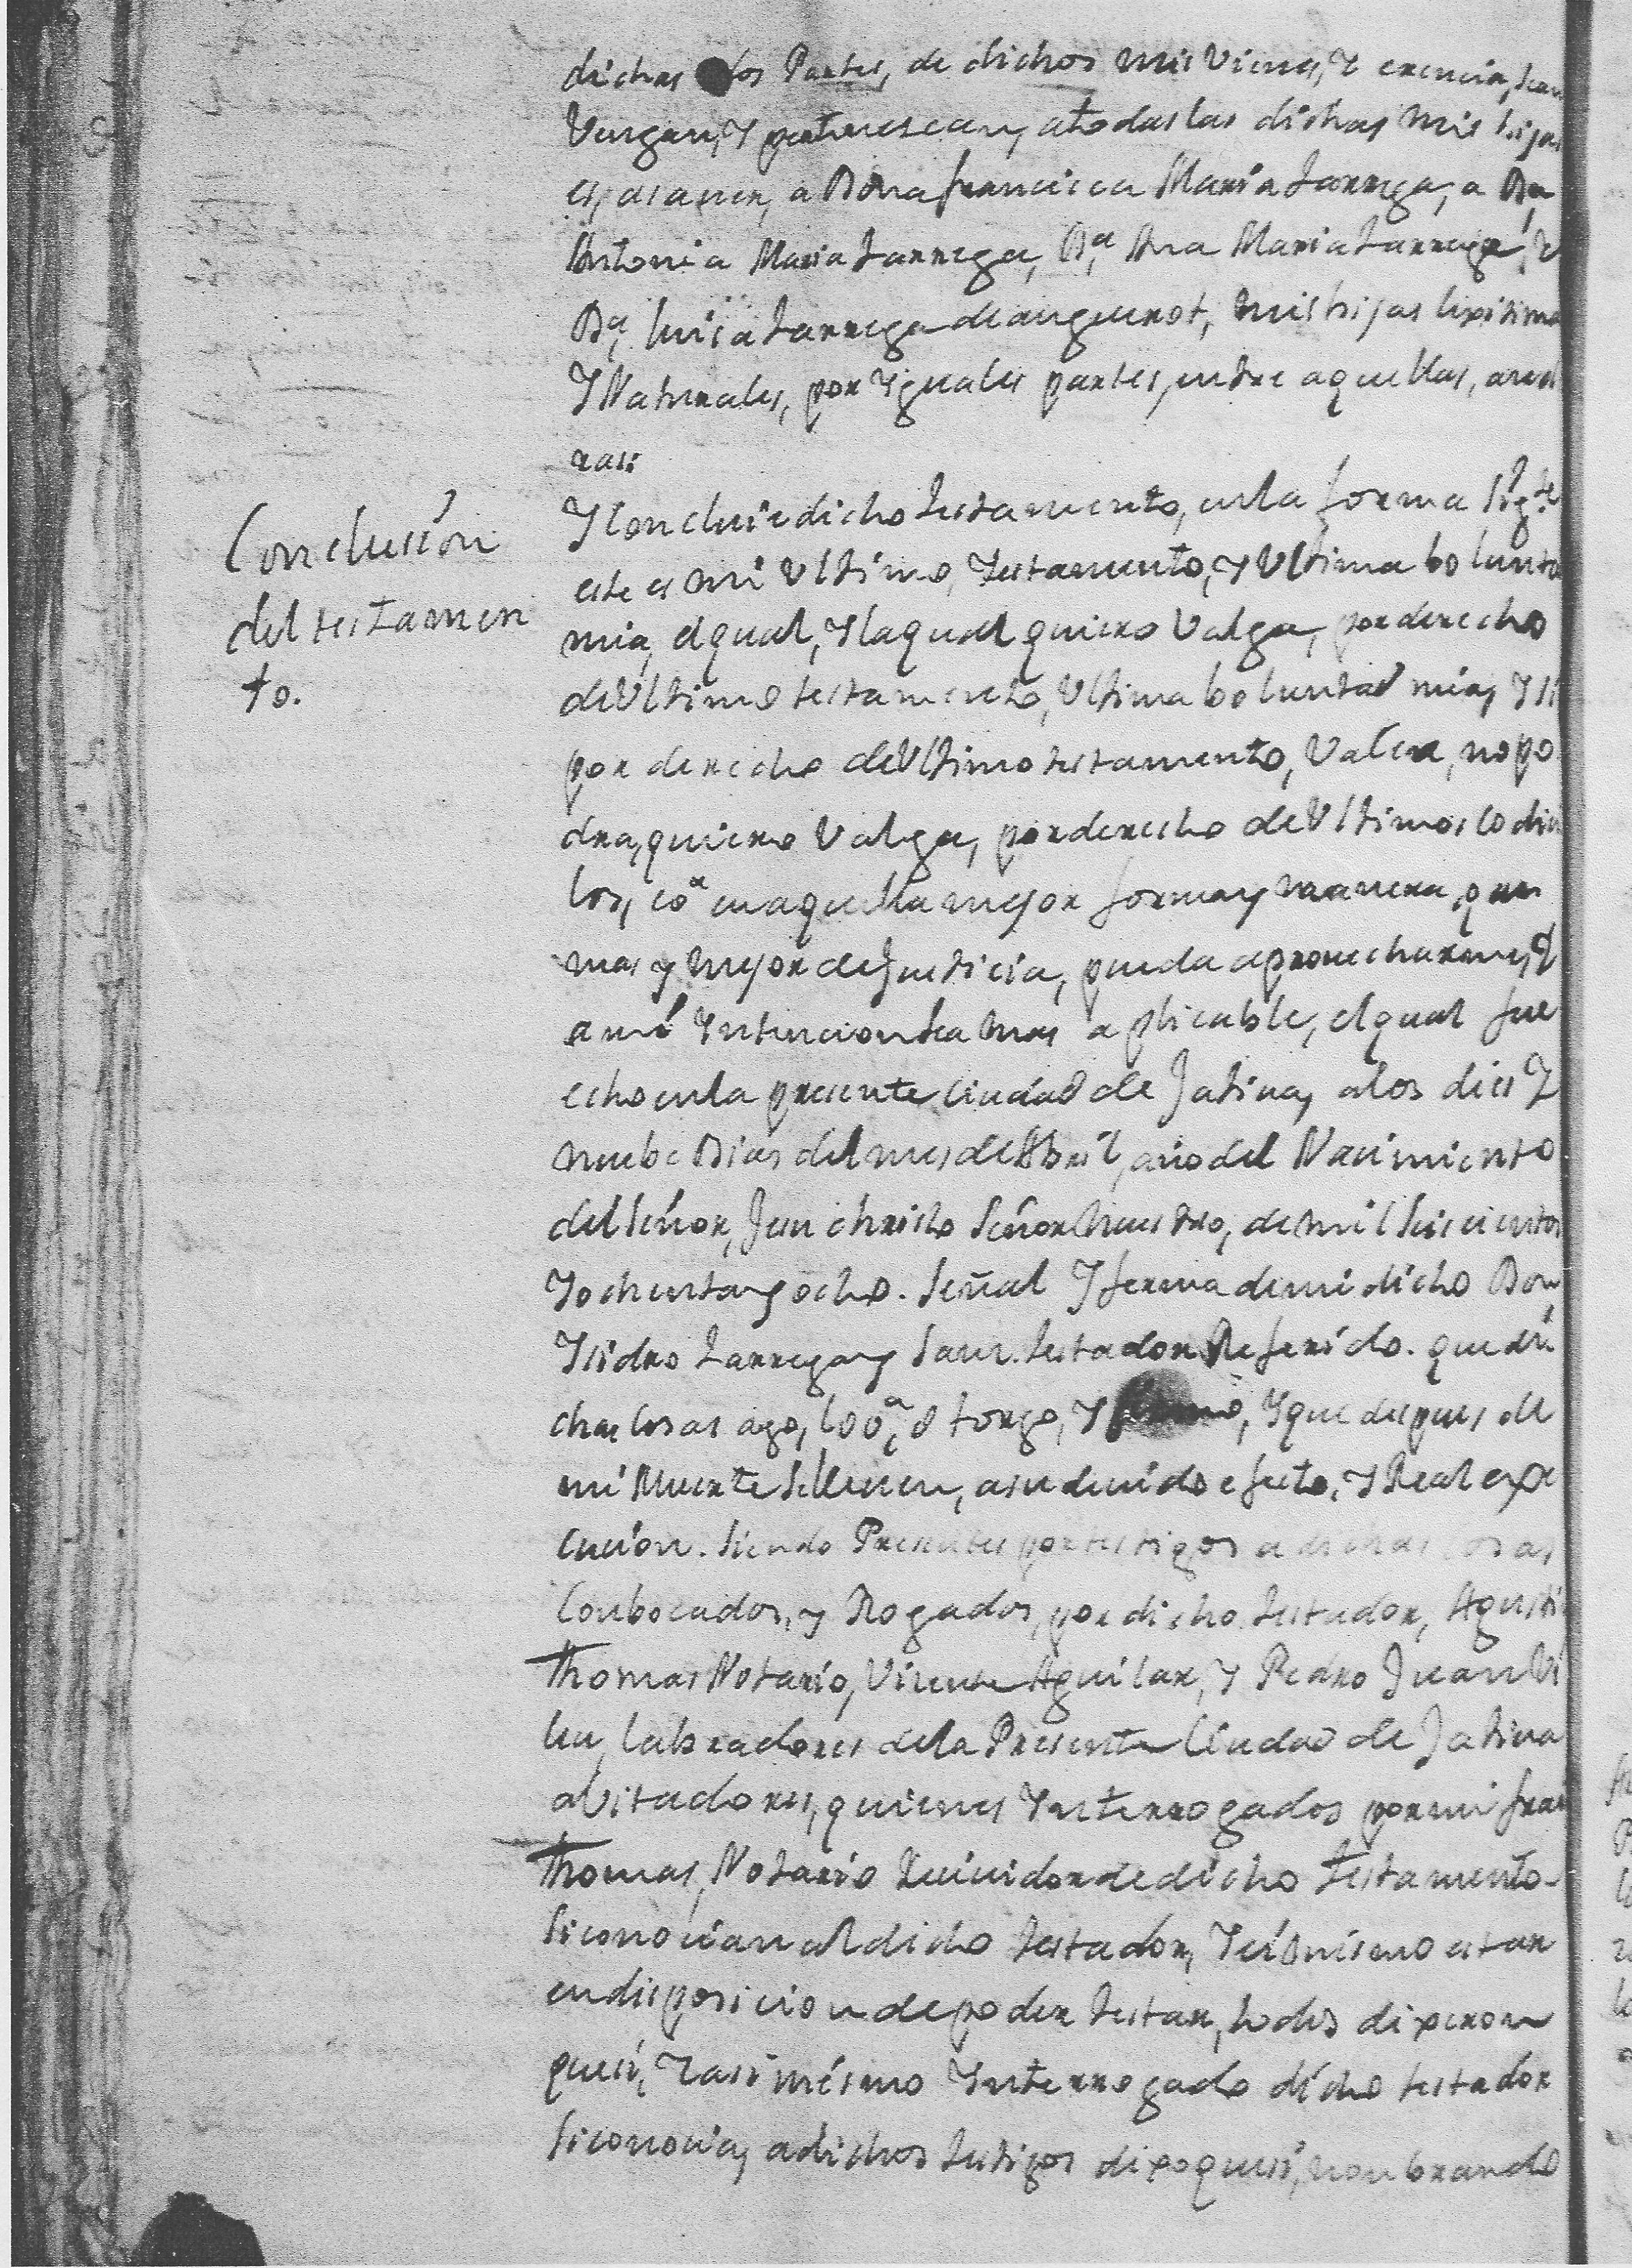 dichas dos Partes, de dichos mis Vienes, Y erencia, sean
Vengan, Y pertenescan, atodas las dichas mis hijas
es, asaver, a Dona francisca Maria Tarrega, a Dª
Antonia Maria Tarrega, Dª Ana Maria Tarrega, Y
Dª luisa Tarrega deanguerot, mis hijas lixitimas
Y Naturales, por Yguales partes, entre aquellas,
ras:
Conclusion
del testamen
to.
Y Concluie dicho testamento, enla forma sigte
este es mi Vltimo, testamento, y Vltima boluntad
mia, elqual, Ylaqual quiero Valga, por derecho
deVltimo testamento, Vltima boluntad mia, Y si
por derecho deVltimo testamento, Valer, no po
dra, quiero Valga, por derecho deVltimos codici
los, en aquella mejor forma y manera, que
mas y mejor deJusticia, pueda aprovecharme, Y
a mi Yntencion sea mas aplicable, elqual fue
echo enla presente Ciudad de Jativa, alos dies Y
nuebe Dias del mes deAbril, año del Nacimiento
del Señor, Jesu christo Señor Nuestro, demil Seiscientos
Yochentay ocho. Señal Y ferma demi dicho Don
Ysidro Tarregay Sans. testador Referido. que di
chas cosas ago, otorgo, Y firmo, Yque despues de
mi Muerte selleven, asu devido efeto, Y Real exe
cucion. Siendo Presentes por testigos adichas cosas,
Conbocados, y Rogados, por dicho testador, Agusti
Thomas Notario, Visente Aguilar, Y Pedro Juan Vi
la, labradores dela Presente Ciudad de Jativa
abitadores, quienes Ynterrogados por mi fran
Thomas, Notario Recividor dedicho testamento
Siconocian aldicho testador, Yelmismo estar
endisposicion depoder testar, todos dixeron
quesi, Yasi mismo Ynterrogado dicho testador
Siconocia, adichos testigos dixoquesi, nonbrando